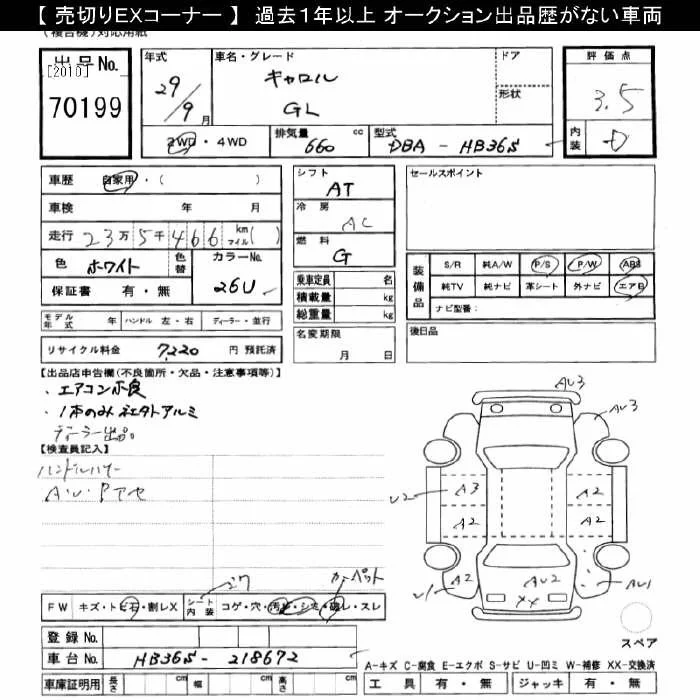 【 売切りEXコーナー 】 過去1年以上 オークション出品歴がない車両
(複合機)対応用紙
出品No. [2010] 70199
年式 29/9月
車名・グレード キャロル GL
ドア 形状
評価点 3.5
内装 D
2WD・4WD
排気量 660 cc
型式 DBA-HB36S
車歴 自家用・( )
車検 年 月
走行 23万5千466 km マイル( )
色 ホワイト 色替 カラーNo. 26U
保証書 有・無
モデル年式 年 ハンドル 左・右 ディーラー・並行
リサイクル料金 7,220 円 預託済
シフト AT
冷房 AC
燃料 G
乗車定員 名
積載量 kg
総重量 kg
名変期限 月 日
セールスポイント
装備品 S/R 純A/W P/S P/W ABS
純TV 純ナビ 革シート 外ナビ エアB
ナビ型番:
後日品
【出品店申告欄(不良箇所・欠品・注意事項等)】
・エアコン不良
・1本のみ社外アルミ
ディーラー出品。
【検査員記入】
ハンドルハゲ
A・U・Pアセ
AU3
AU3
U2 A3 A2
A2 A2
U1 A2 AU2 AU1
XX
スペア
カーペット
FW キズ・トビ石・割レX シート内装 コゲ・穴・汚レ・シミ・破レ・スレ
登録 No.
車台 No. HB36S-218672
車庫証明用 長さ cm 幅 cm 高さ cm
A-キズ C-腐食 E-エクボ S-サビ U-凹ミ W-補修 XX-交換済
工具 有・無 ジャッキ 有・無